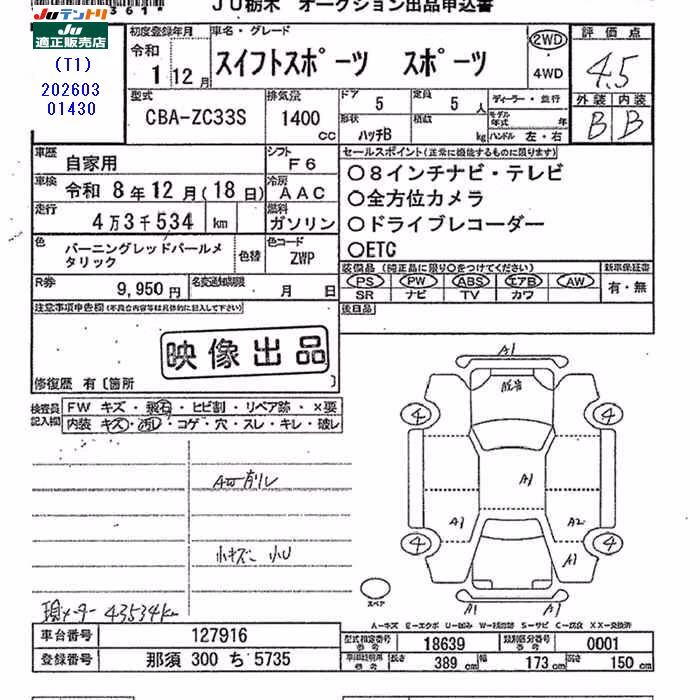 JU栃木 オークション出品申込書
Juテントリ
JU
適正販売店
(T1)
202603
01430
初度登録年月
令和
1 12月
車名・グレード
スイフトスポーツ スポーツ
2WD
4WD
評価点
4.5
外装 内装
B B
型式
CBA-ZC33S
排気量
1400
cc
ドア
5
定員
5 人
形状
ハッチB
積載
kg
ディーラー・並行
モデル年式 年
ハンドル 左・右
車歴
自家用
シフト
F6
車検
令和 8年12月(18日)
冷房
AAC
走行
4万3千534 km
燃料
ガソリン
色
バーニングレッドパールメタリック
色替
色コード
ZWP
R券
9,950円
名変通知期限
月 日
セールスポイント(正常に機能するものに限ります)
○8インチナビ・テレビ
○全方位カメラ
○ドライブレコーダー
○ETC
装備品(純正品に限り○をつけてください)
PS PW ABS エアB AW
SR ナビ TV カワ
新車保証書
有・無
後日品
注意事項申告欄(不具合内容等は具体的に記入して下さい)
映像出品
修復歴 有〔箇所 〕
検査員記入欄
FW キズ・飛石・ヒビ割・リペア跡・×要
内装 キズ・汚レ・コゲ・穴・スレ・キレ・破レ
小キズ 小U
現メーター 43534km
A1
4 4
A1
A1 A2
A1
4 4
A1 A1
スペア
A-キズ E-エクボ U-凹み W-補修跡 S-サビ C-腐食 XX-交換済
車台番号
127916
登録番号
那須 300 ち 5735
型式指定番号
18639
類別区分番号
0001
長さ 389 cm 幅 173 cm 高さ 150 cm